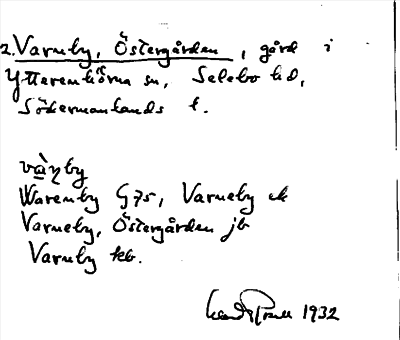 2. Varneby, Östergården, gård i
Ytterenhörna sn, Selebo hd,
Södermanlands l.
Warenby G75, Varneby ek
Varneby, Östergården jb
Varnby kb.
1932